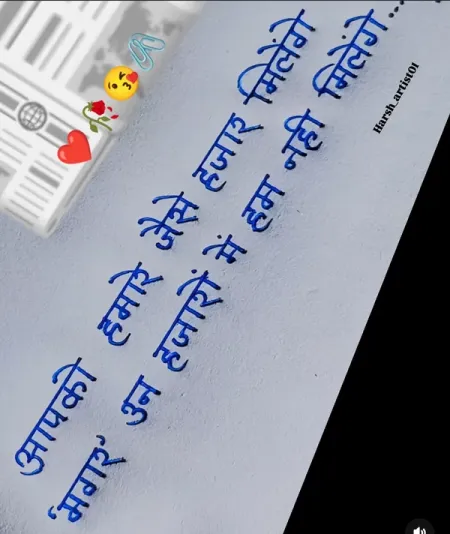 आपको हमारे जैसे हजार मिलेंगे
'मगर' उन हजारों में हम नही मिलेंगे...
Harsh_artist01